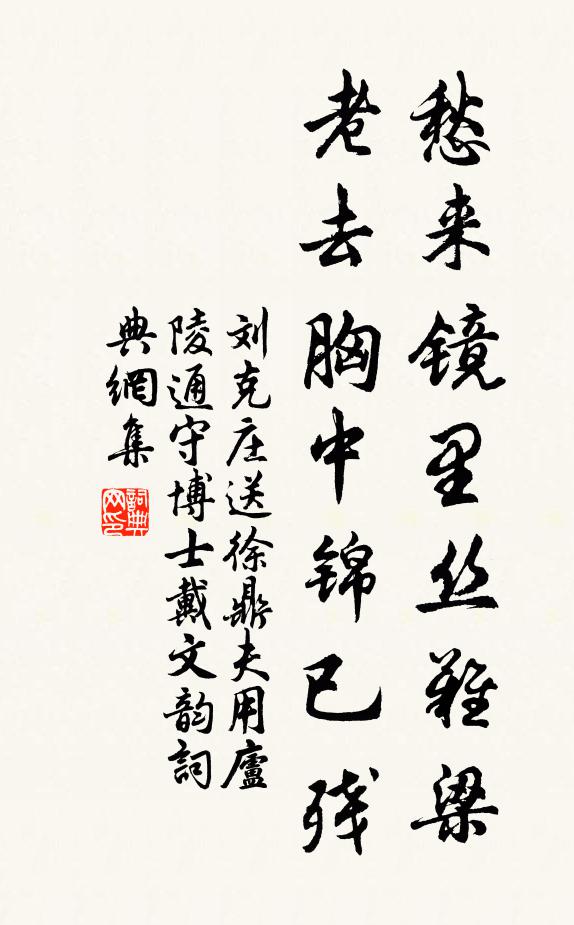 愁来镜里丝难梁
老去胸中锦已残
刘克庄送徐鼎夫用廬
陵通守博士戴文韵詞
典網集
詞典
网印